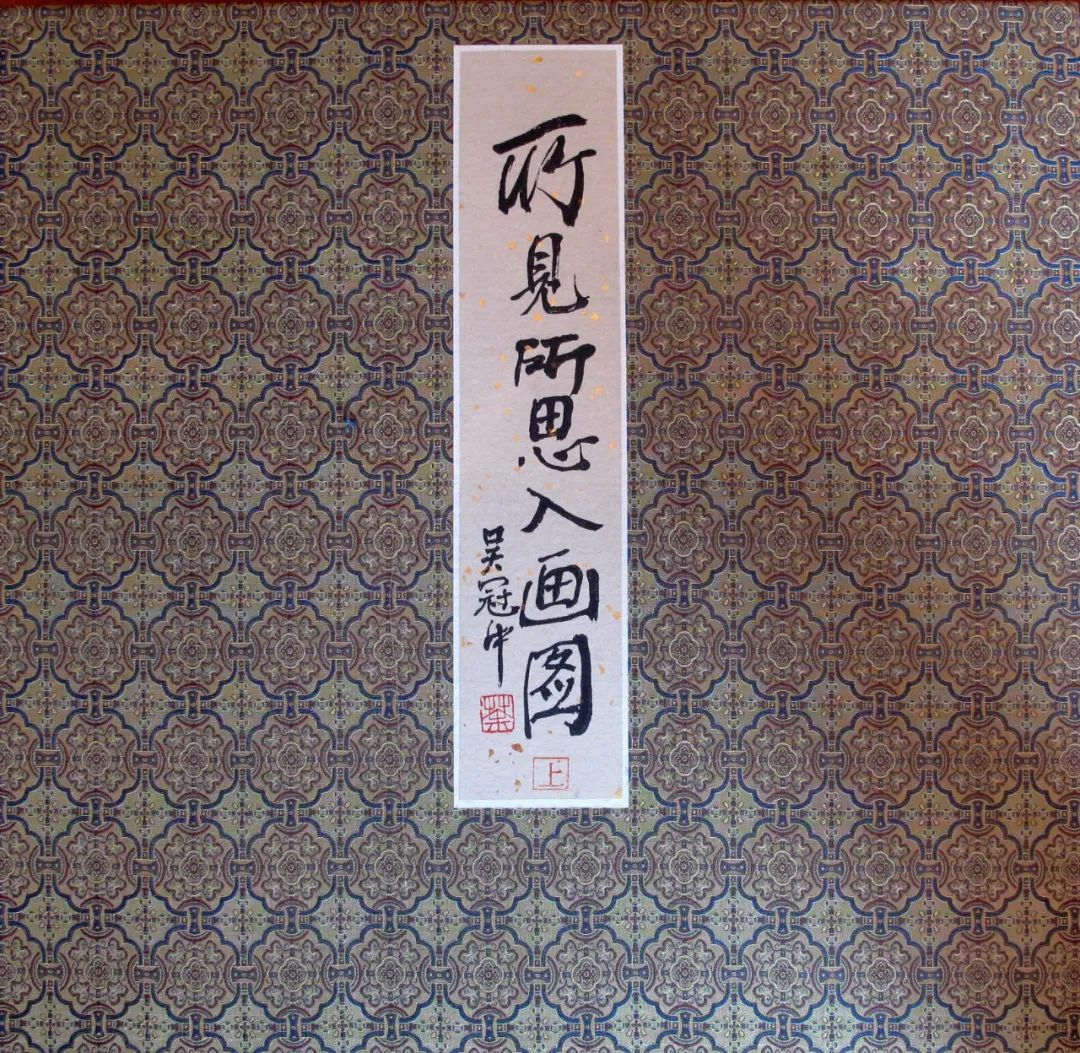 所見所思入画图
吴冠中
荼
上